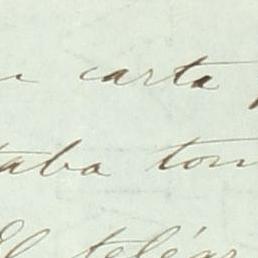 carta
taba tom
El telégr